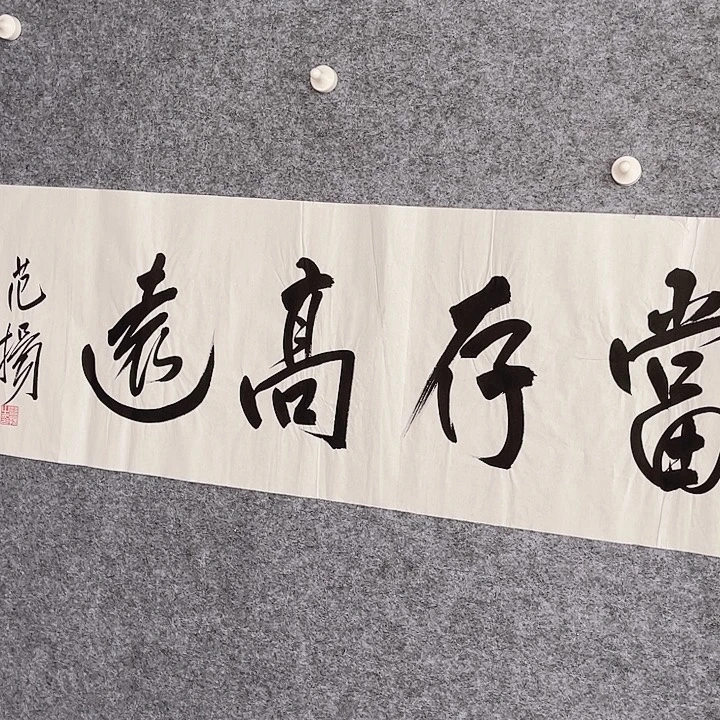 當存高遠
范揚